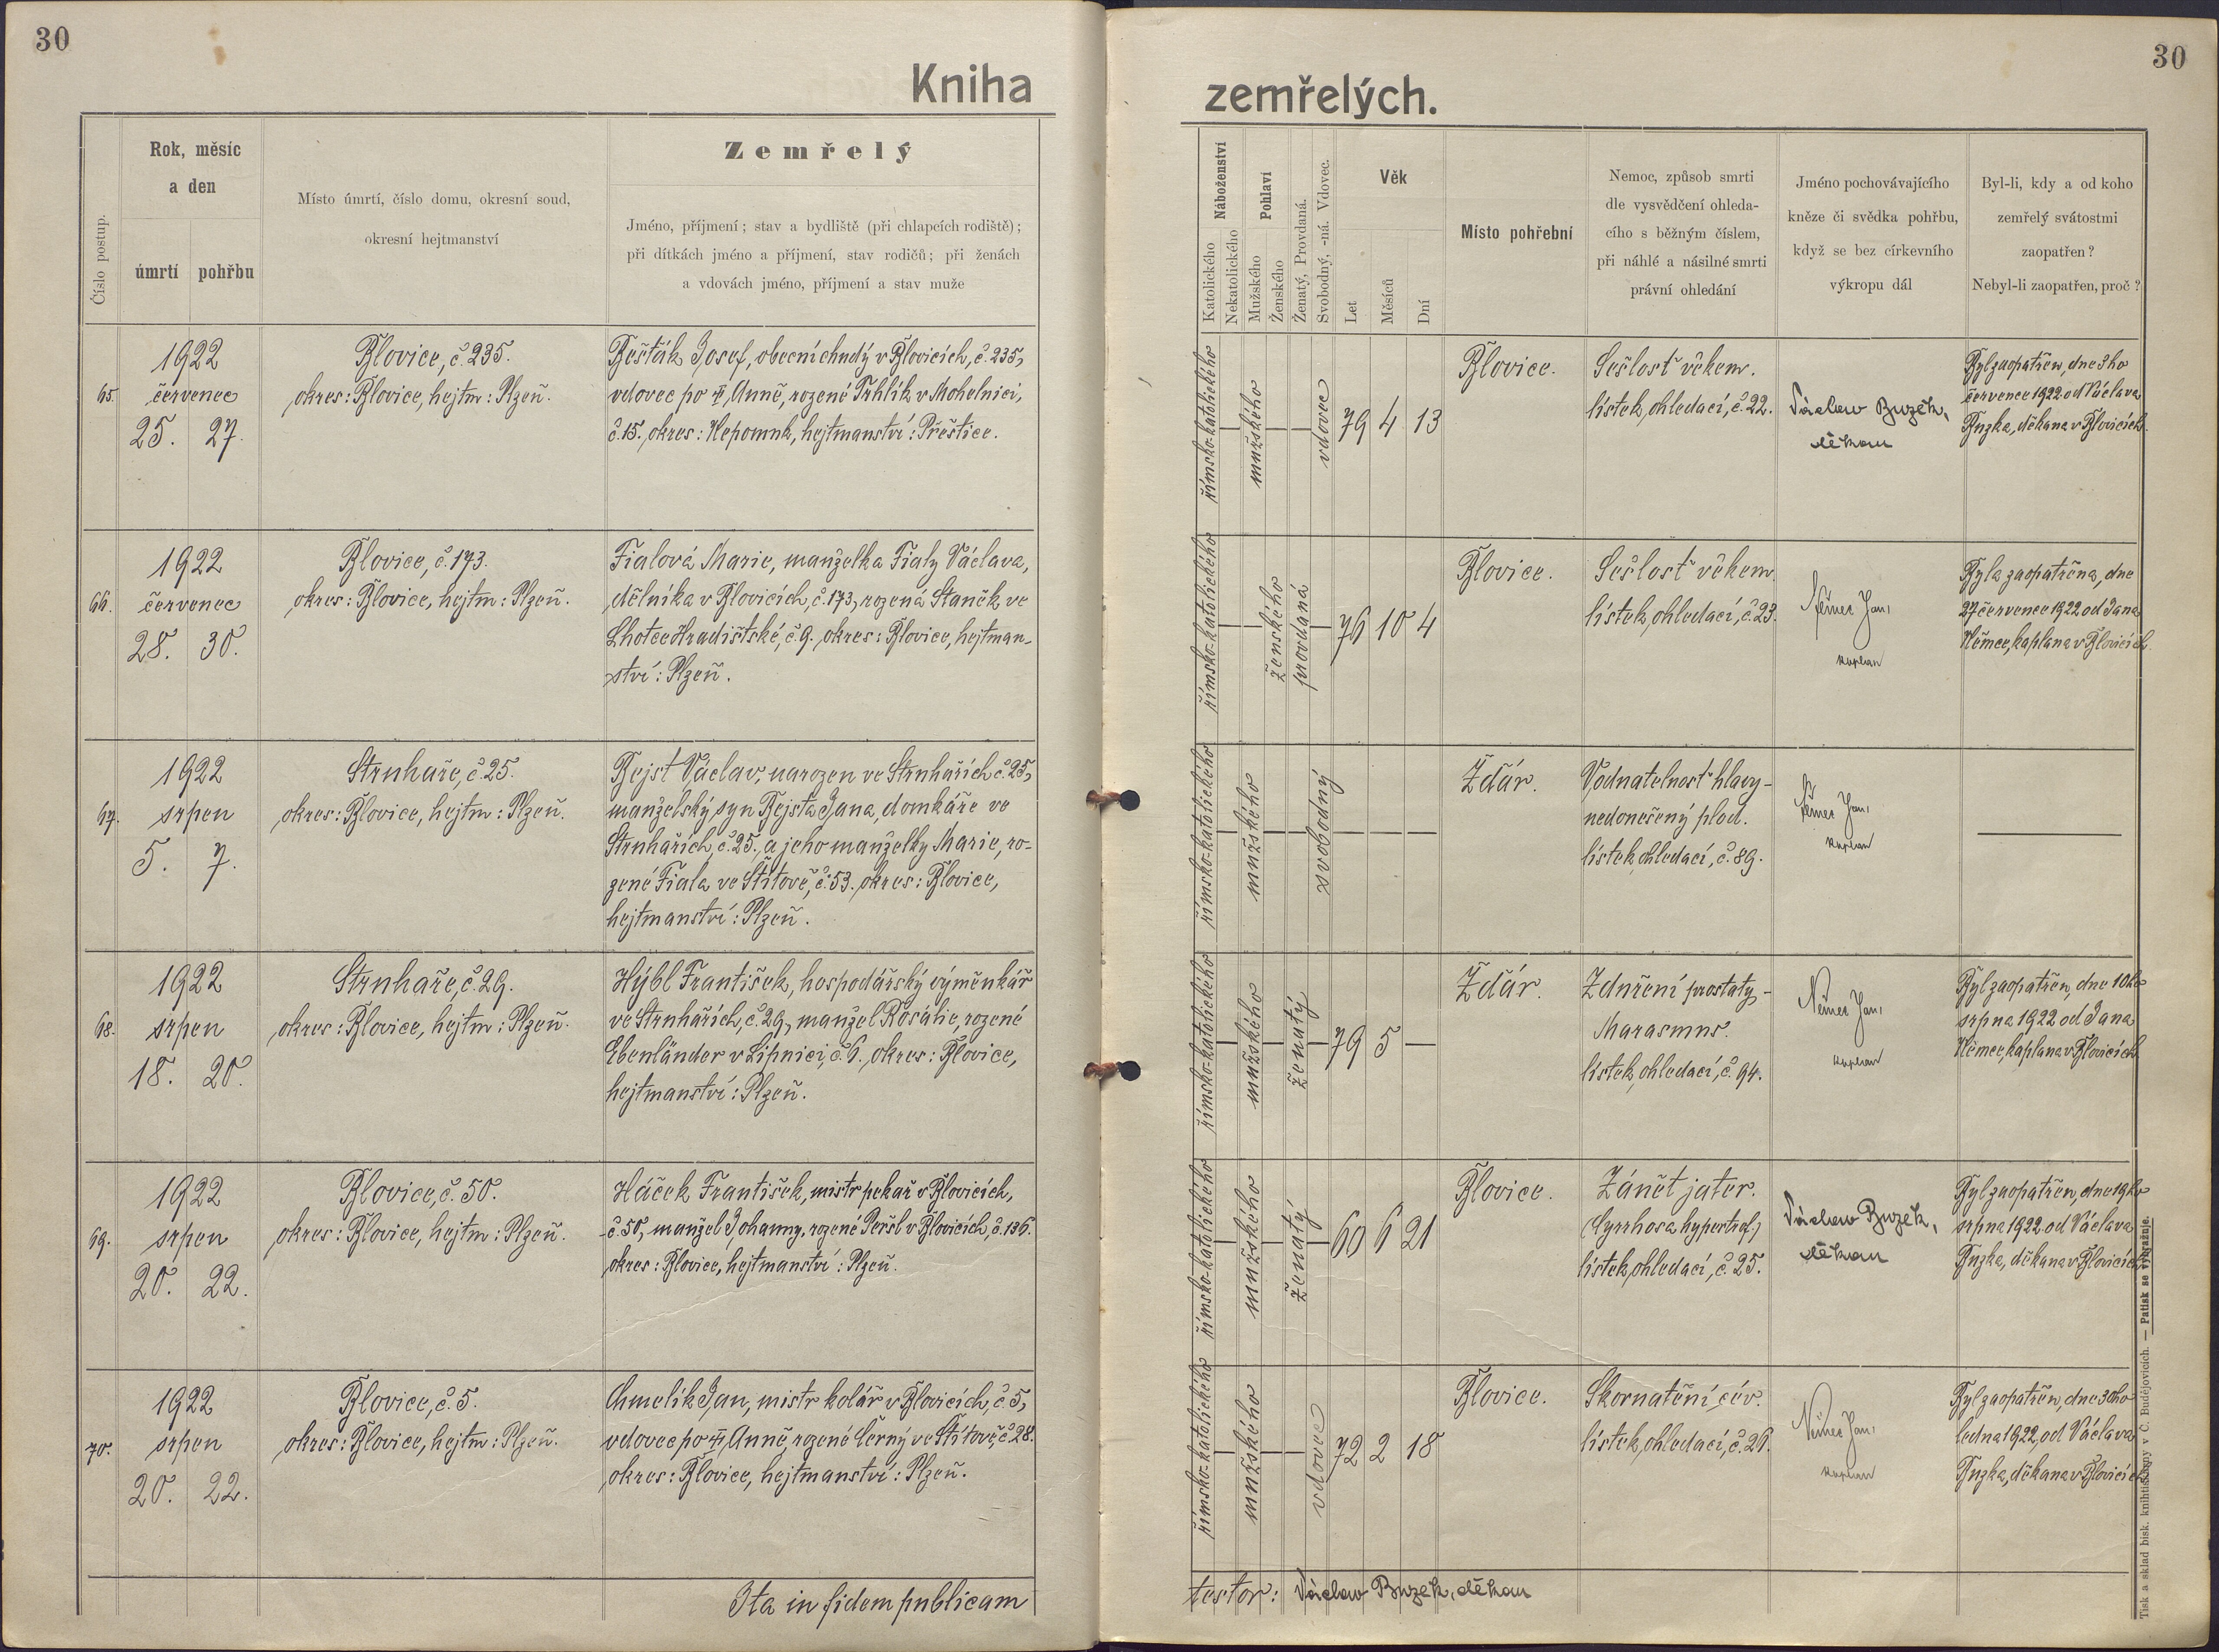 30
Kniha
Číslo postup.
Rok, měsíc
a den
úmrtí
pohřbu
Místo úmrtí, číslo domu, okresní soud,
okresní hejtmanství
Zemřelý
Jméno, příjmení; stav a bydliště (při chlapcích rodiště);
při dítkách jméno a příjmení, stav rodičů; při ženách
a vdovách jméno, příjmení a stav muže
65.
1922
červenec
25. 27.
Blovice, č. 235.
okres: Blovice, hejtm: Plzeň.
Bešťák Josef, obecní chudý v Blovicích, č. 235,
vdovec po † Anně, rozené Trhlík v Mohelnici,
č. 15, okres: Nepomuk, hejtmanství: Přeštice.
66.
1922
červenec
28. 30.
Blovice, č. 173.
okres: Blovice, hejtm: Plzeň.
Fialová Marie, manželka Fialy Václava,
dělníka v Blovicích, č. 173, rozená Staněk ve
Lhotce Hradišťské, č. 9. okres: Blovice, hejtman-
ství: Plzeň.
67.
1922
srpen
5. 7.
Struhaře, č. 25.
okres: Blovice, hejtm: Plzeň.
Bejst Václav, narozen ve Struhařích č. 25,
manželský syn Bejsta Jana, domkáře ve
Struhařích, č. 25, a jeho manželky Marie, ro-
zené Fiala ve Štítově, č. 53. okres: Blovice,
hejtmanství: Plzeň.
68.
1922
srpen
18. 20.
Struhaře, č. 29.
okres: Blovice, hejtm: Plzeň.
Hýbl František, hospodářský výměnkář
ve Struhařích, č. 29, manžel Rosalie, rozené
Ebenländer v Lipnici, č. 6., okres: Blovice,
hejtmanství: Plzeň.
69.
1922
srpen
20. 22.
Blovice, č. 50.
okres: Blovice, hejtm: Plzeň.
Háček František, mistr pekař v Blovicích,
č. 50, manžel Johanny, rozené Peršl v Blovicích, č. 136.
okres: Blovice, hejtmanství: Plzeň.
70.
1922
srpen
20. 22.
Blovice, č. 5.
okres: Blovice, hejtm: Plzeň.
Chmelík Jan, mistr kolář v Blovicích, č. 5,
vdovec po † Anně, rozené Černý ve Štítově, č. 28.
okres: Blovice, hejtmanství: Plzeň.
Ita in fidem publicam
30
zemřelých.
Náboženství
Katolického
Nekatolického
Pohlaví
Mužského
Ženského
Ženatý, Provdaná.
Svobodný, -ná. Vdovec.
Věk
Let
Měsíců
Dní
Místo pohřební
Nemoc, způsob smrti
dle vysvědčení ohleda-
cího s běžným číslem,
při náhlé a násilné smrti
právní ohledání
Jméno pochovávajícího
kněze či svědka pohřbu,
když se bez církevního
výkropu dál
Byl-li, kdy a od koho
zemřelý svátostmi
zaopatřen?
Nebyl-li zaopatřen, proč?
římsko-katolického
mužského
vdovec
79 4 13
Blovice.
Sešlosť věkem.
lístek ohledací, č. 22.
Václav Buzek,
děkan
Byl zaopatřen, dne 3ho
července 1922 od Václava
Buzka, děkana v Blovicích.
římsko-katolického
ženského
provdaná
76 10 4
Blovice.
Sešlosť věkem.
lístek ohledací, č. 23.
Němec Jan,
kaplan
Byla zaopatřena, dne
27 července 1922 od Jana
Němce, kaplana v Blovicích.
římsko-katolického
mužského
svobodný
Ždár.
Vodnatelnosť hlavy-
nedonešený plod.
lístek ohledací, č. 89.
Němec Jan,
kaplan
římsko-katolického
mužského
ženatý
79 5 —
Ždár.
Zduření prostaty-
Marasmus.
lístek ohledací, č. 94.
Němec Jan,
kaplan
Byl zaopatřen, dne 10ho
srpna 1922 od Jana
Němce, kaplana v Blovicích
římsko-katolického
mužského
ženatý
60 6 21
Blovice.
Zánět jater.
(Cyrrhosa hypertrof.)
lístek ohledací, č. 25.
Václav Buzek,
děkan
Byl zaopatřen, dne 19ho
srpna 1922 od Václava
Buzka, děkana v Blovicích
římsko-katolického
mužského
vdovec
72 2 18
Blovice.
Skornatění cév.
lístek ohledací, č. 26.
Němec Jan,
kaplan
Byl zaopatřen, dne 30ho
ledna 1922, od Václava
Buzka, děkana v Blovicích
testor: Václav Buzek, děkan
Tisk a sklad bisk. knihtiskárny v Č. Budějovicích. — Patisk se vyhražuje.